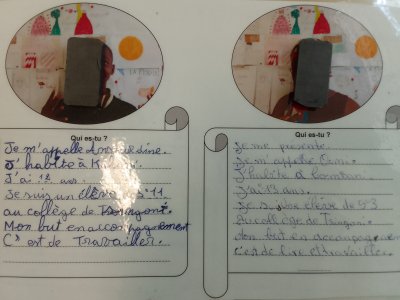 Qui es-tu ?
Je m'appelle
J'habite à
J'ai 12 ans.
Je suis un élève 11
au collège de Tsingoni.
Mon but en accompagnement
C'est de Travailler.
Qui es-tu ?
Je me présente.
Je m'appelle
J'habite à
J'ai 13 ans.
Je suis élève de 53
au collège de Tsingoni.
Mon but en accompagnement
c'est de lire et travailler.